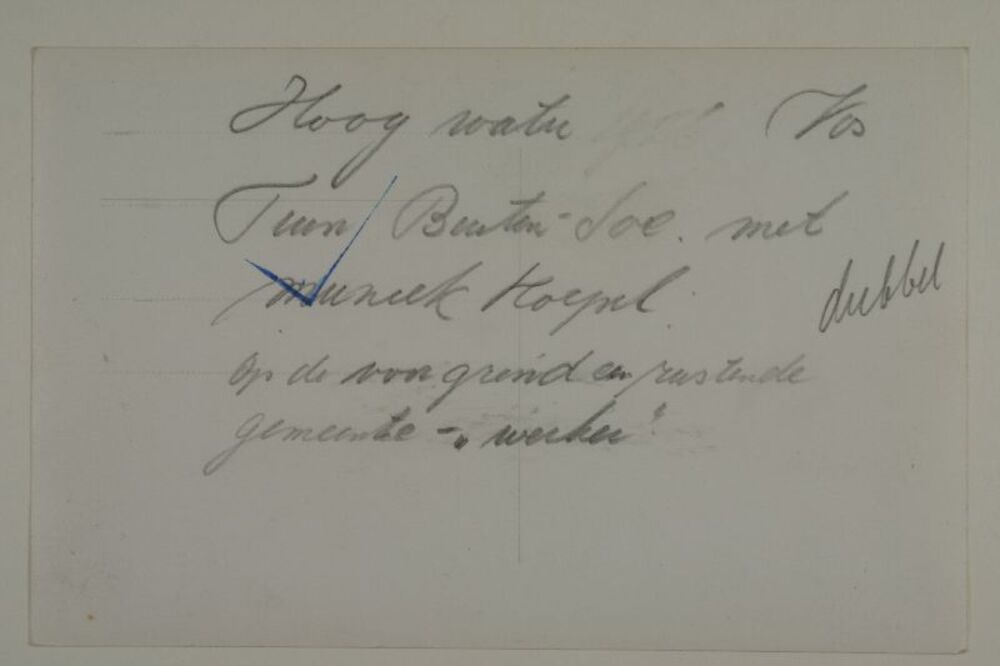 Hoog water Vos
Tuin Buiten-Soc. met
muziek Koepel
dubbel
Op de voorgrond een rustende
gemeente-„werker"